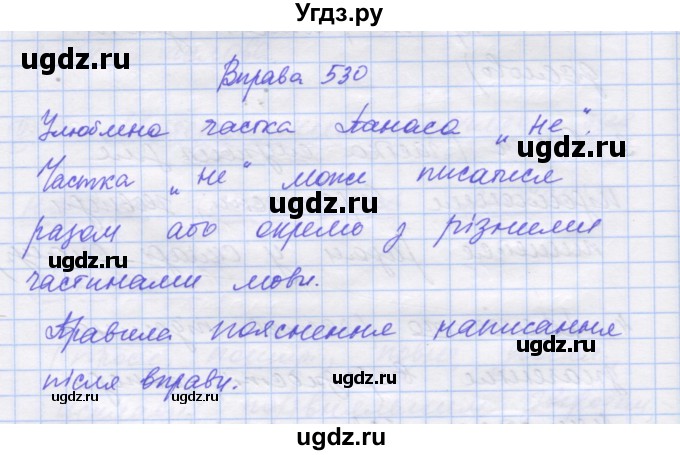 Угдз.ру
ugdz.ru
Вправа 530
Улюблена частка Панаса „не“.
ugdz.ru
Частка „не“ може писатися
ugdz.ru
разом або окремо з різними
ugdz.ru
частинами мови.
Правила пояснення написання
ugdz.ru
після вправи.
ugdz.ru
ugdz.ru
ugdz.ru
ugdz.ru